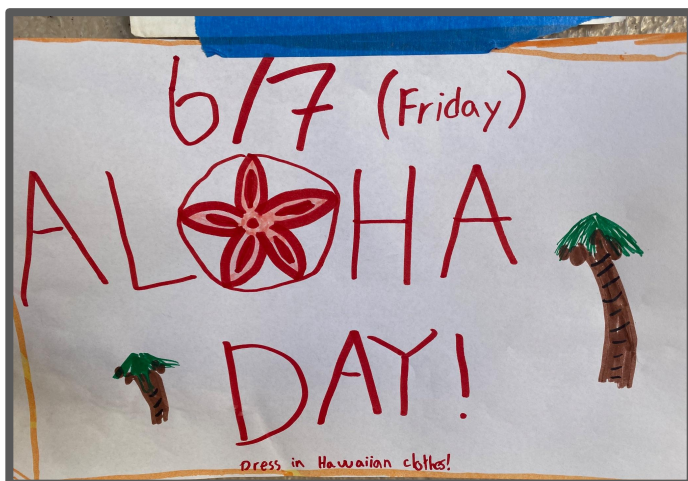 6/7 (Friday)
ALOHA
DAY!
Dress in Hawaiian clothes!